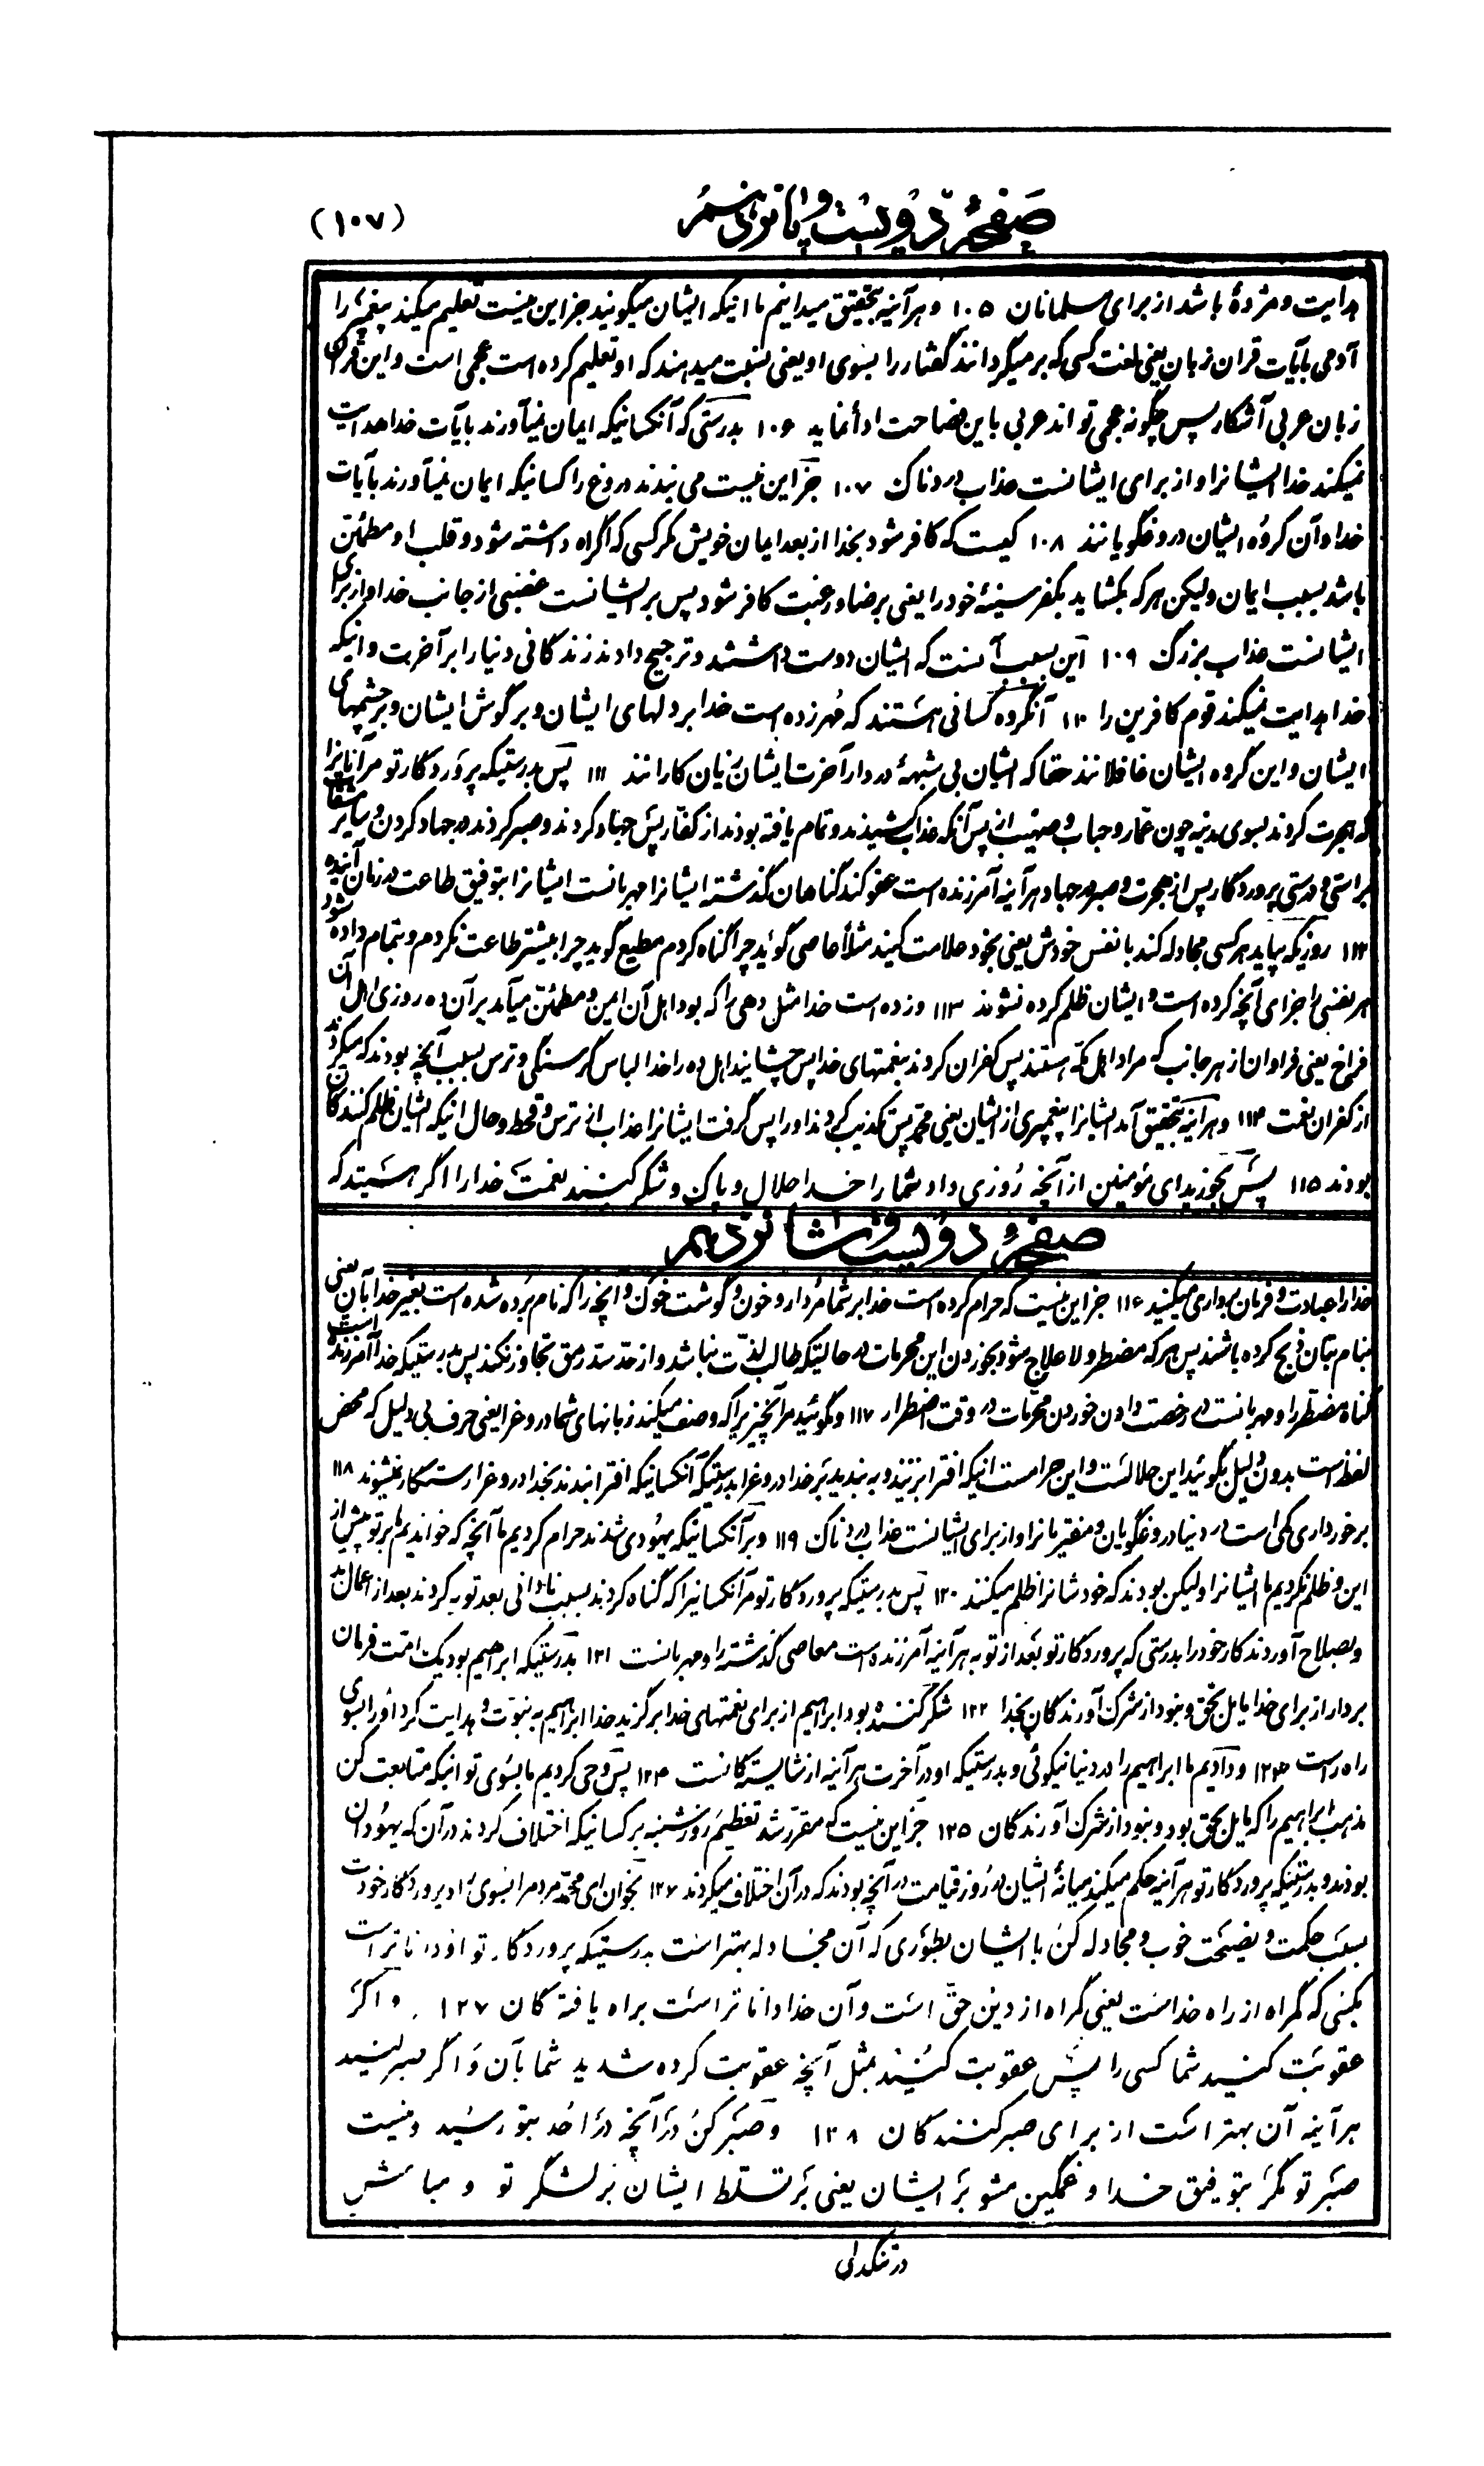 صفحهٔ دویست و پانزدهم
(۱۰۷)
هدایت و مژدهٔ باشد از برای مسلمانان ۱۰۵ و هرآینه بتحقیق میدانیم ما اینکه ایشان میگویند جز این نیست تعلیم میکند پیغمبر را
آدمی بآیات قران زبان یعنی لغت کسی که برمیگردانند گفتار را بسوی او یعنی نسبت میدهند که او تعلیم کرده است عجمی است و این قرآن
زبان عربی آشکار پس چگونه عجمی تواند عربی باین فصاحت ادأ نماید ۱۰۶ بدرستی که آنکسانیکه ایمان نمیآورند بآیات خدا هدایت
نمیکند خدا ایشانرا و از برای ایشانست عذاب دردناک ۱۰۷ جز این نیست می بندند دروغ را کسانیکه ایمان نمیآورند بآیات
خدا و آن گروه ایشان دروغگویانند ۱۰۸ کیست که کافر شود بخدا از بعد ایمان خویش مگر کسی که اکراه داشته شود و قلب او مطمئن
باشد بسبب ایمان ولیکن هر که بگشاید بکفر سینهٔ خود را یعنی برضا و رغبت کافر شود پس بر ایشانست غضبی از جانب خدا و از برای
ایشانست عذاب بزرگ ۱۰۹ این بسبب آنست که ایشان دوست داشتند و ترجیح دادند زندگانی دنیا را بر آخرت و اینکه
خدا هدایت نمیکند قوم کافرین را ۱۱۰ آنگروه کسانی هستند که مُهر زده است خدا بر دلهای ایشان و بر گوش ایشان و بر چشمهای
ایشان و این گروه ایشان غافلانند حقا که ایشان بی شبههٔ در دار آخرت ایشان زیان کارانند ۱۱۱ پس بدرستیکه پروردگار تو مر آنانرا
که هجرت کردند بسوی مدینه چون عمار و خباب و صهیب از پس آنکه عذاب کشیدند و تمام یافته بودند از کفار پس جهاد کردند و صبر کردند در جهاد کردن و سایر مشاق
براستی و درستی پروردگار پس از هجرت و صبر و جهاد هرآینه آمرزنده است عفو کند گناهان گذشته ایشانرا مهربانست ایشانرا بتوفیق طاعت در زمان آینده
۱۱۲ روزیکه بیاید هر کسی مجادله کند با نفس خودش یعنی بخود ملامت کند مثلاً عاصی گوید چرا گناه کردم مطیع گوید چرا بیشتر طاعت نکردم و تمام داده شود
هر نفسی را جزای آنچه کرده است و ایشان ظلم کرده نشوند ۱۱۳ و زده است خدا مثل دهی را که بود اهل آن امین و مطمئن میآمد بر آن ده روزی اهل آن
فراخ یعنی فراوان از هر جانب که مراد اهل مکه هستند پس کفران کردند بنعمتهای خدا پس چشانید اهل ده را خدا لباس گرسنگی و ترس بسبب آنچه بودند که میکردند
از کفران نعمت ۱۱۴ و هرآینه بتحقیق آمد ایشانرا پیغمبری از ایشان یعنی محمد پس تکذیب کردند او را پس گرفت ایشانرا عذاب از ترس و قحط و حال اینکه ایشان ظلم کنندگان
بودند ۱۱۵ پس بخورید ای مؤمنین از آنچه روزی داد شما را خدا حلال و پاک و شکر کنید نعمت خدا را اگر هستید که
صفحهٔ دویست و شانزدهم
خدا را عبادت و فرمان برداری میکنید ۱۱۶ جز این نیست که حرام کرده است خدا بر شما مُردار و خون و گوشت خوک و آنچه را که نام برده شده است بغیر خدا بآن یعنی
بنام بتان ذبح کرده باشند پس هر که مضطر و لاعلاج شود بخوردن این محرمات در حالتیکه طالب لذّت نباشد و از حدّ سدّ رمق تجاوز نکند پس بدرستیکه خدا آمرزنده است
گناه مضطر را و مهربانست در رخصت دادن خوردن محرمات در وقت اضطرار ۱۱۷ و نگوئید مر آنچیزیرا که وصف میکند زبانهای شما دروغ را یعنی حرف بی دلیل که محض
لفظ است بدون دلیل نگوئید این حلالست و این حرامست اینکه افترا بزنید و به بندید بر خدا دروغ را بدرستیکه آنکسانیکه افترا بندند بخدا دروغ را رستگار نمیشوند ۱۱۸
برخورداری کمی است در دنیا دروغگویان و مفتریانرا و از برای ایشانست عذاب دردناک ۱۱۹ و بر آنکسانیکه یهُودی شدند حرام کردیم ما آنچه که خواندیم ما بر تو پیش از
این و ظلم نکردیم ما ایشانرا ولیکن بودند که خودشانرا ظلم میکنند ۱۲۰ پس بدرستیکه پروردگار تو مر آنکسانیرا که گناه کردند بسبب نادانی بعد توبه کردند بعد از اعمال بد
و بصلاح آوردند کار خود را بدرستی که پروردگار تو بعد از توبه هرآینه آمرزنده است معاصی گذشته را و مهربانست ۱۲۱ بدرستیکه ابرهیم بود یک امت فرمان
بردار از برای خدا مایل بحق و نبود از شرک آورندگان بخدا ۱۲۲ شکر کننده بود ابراهیم از برای نعمتهای خدا برگزید خدا ابراهیم به نبوّت و هدایت کرد او را بسوی
راه راست ۱۲۳ و دادیم ما ابراهیم را در دنیا نیکوئی و بدرستیکه او در آخرت هرآینه از شایستگانست ۱۲۴ پس وحی کردیم ما بسوی تو اینکه متابعت کن
مذهب ابراهیم را که مایل بحق بود و نبود از شرک آورندگان ۱۲۵ جز این نیست که مقرّر شد تعظیم روز شنبه بر کسانیکه اختلاف کردند در آن که یهُودان
بودند و بدرستیکه پروردگار تو هرآینه حکم میکند میانهٔ ایشان در روز قیامت در آنچه بودند که در آن اختلاف میکردند ۱۲۶ بخوان ای محمّد مردمرا بسوی راه پروردگار خودت
بسبب حکمت و نصیحت خوب و مجادله کن با ایشان بطوری که آن مجادله بهتر است بدرستیکه پروردگار تو او داناتر است
بکسی که گمراه از راه خداست یعنی گمراه از دین حقّ است و آن خدا داناتر است براه یافتگان ۱۲۷ و اگر
عقوبت کنید شما کسی را پس عقوبت کنید بمثل آنچه عقوبت کرده شدید شما بآن و اگر صبر کنید
هرآینه آن بهتر است از برای صبر کنندگان ۱۲۸ و صبر کن در آنچه در اُحد بتو رسید و نیست
صبر تو مگر بتوفیق خدا و غمگین مشو بر ایشان یعنی بر تسلط ایشان بر لشگر تو و مباش
در تنگدلی